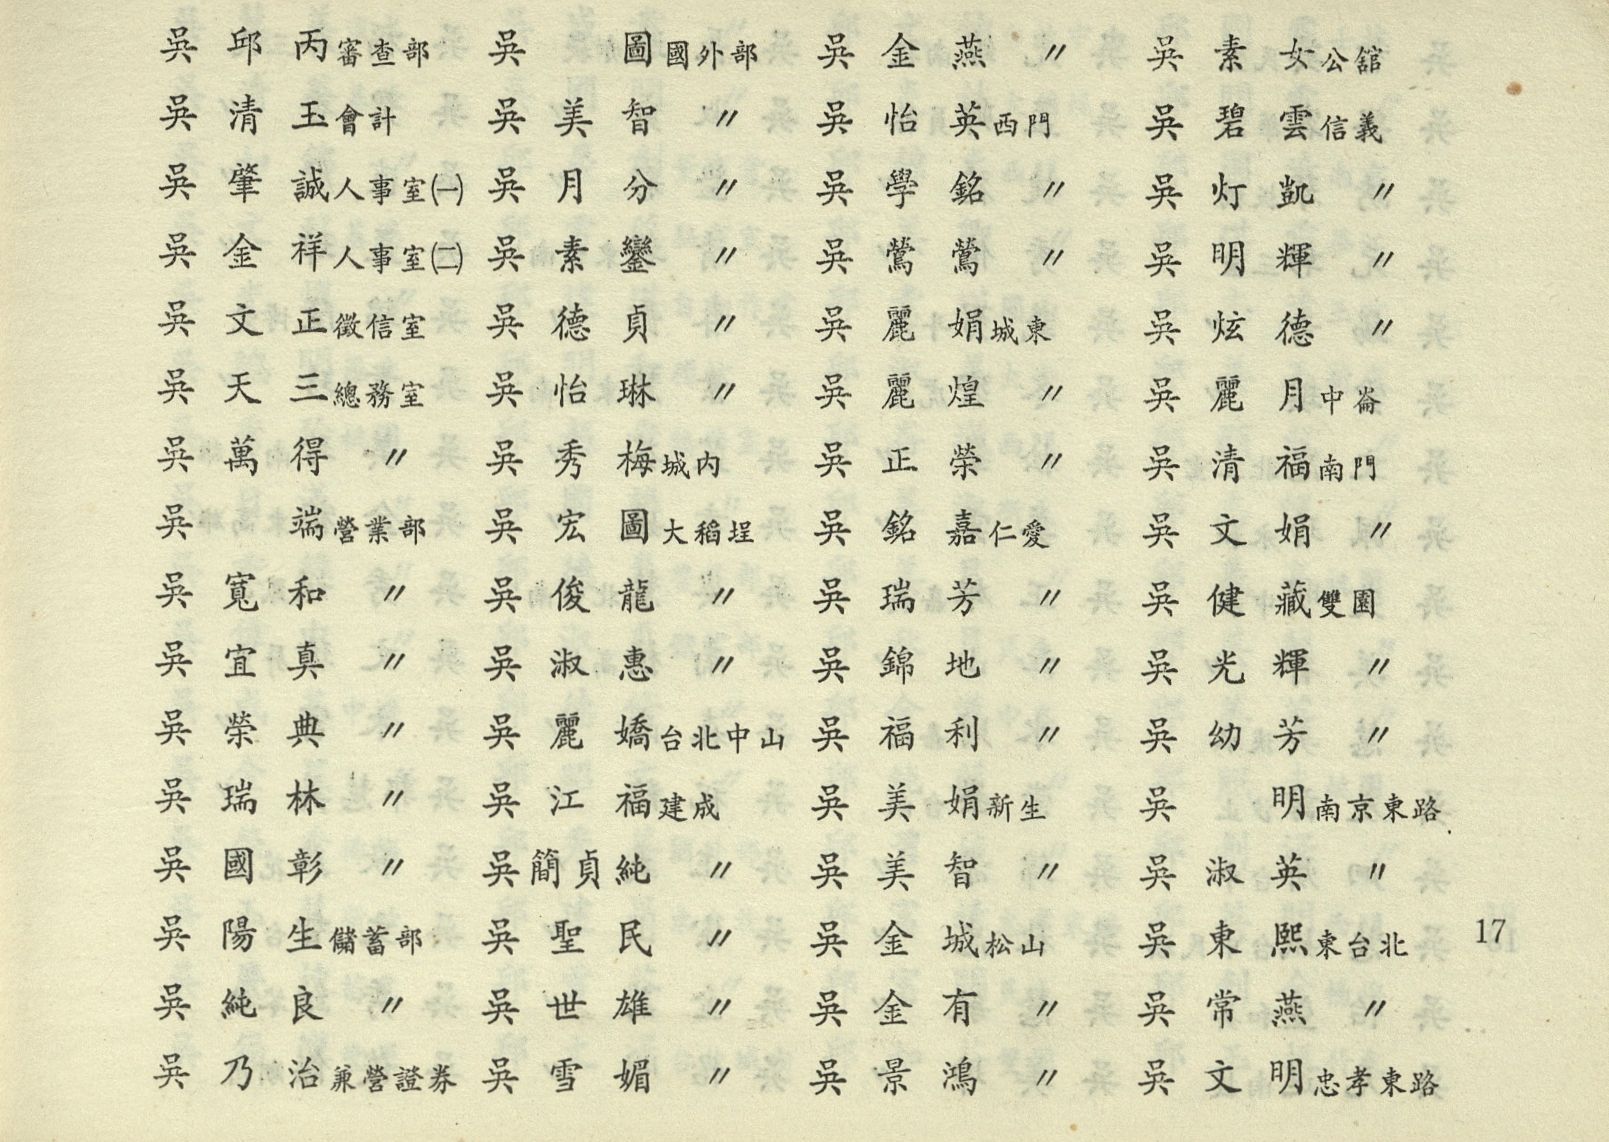 吳邱丙審查部 吳圖國外部 吳金燕〃 吳素女公館
吳清玉會計 吳美智〃 吳怡英西門 吳碧雲信義
吳肇誠人事室㈠ 吳月分〃 吳學銘〃 吳灯凱〃
吳金祥人事室㈡ 吳素鑾〃 吳鶯鶯〃 吳明輝〃
吳文正徵信室 吳德貞〃 吳麗娟城東 吳炫德〃
吳天三總務室 吳怡琳〃 吳麗煌〃 吳麗月中崙
吳萬得〃 吳秀梅城內 吳正榮〃 吳清福南門
吳端營業部 吳宏圖大稻埕 吳銘嘉仁愛 吳文娟〃
吳寬和〃 吳俊龍〃 吳瑞芳〃 吳健藏雙園
吳宜真〃 吳淑惠〃 吳錦地〃 吳光輝〃
吳榮典〃 吳麗嬌台北中山 吳福利〃 吳幼芳〃
吳瑞林〃 吳江福建成 吳美娟新生 吳明南京東路
吳國彰〃 吳簡貞純〃 吳美智〃 吳淑英〃
吳陽生儲蓄部 吳聖民〃 吳金城松山 吳東熙東台北
吳純良〃 吳世雄〃 吳金有〃 吳常燕〃
吳乃治兼營證券 吳雪媚〃 吳景鴻〃 吳文明忠孝東路
17